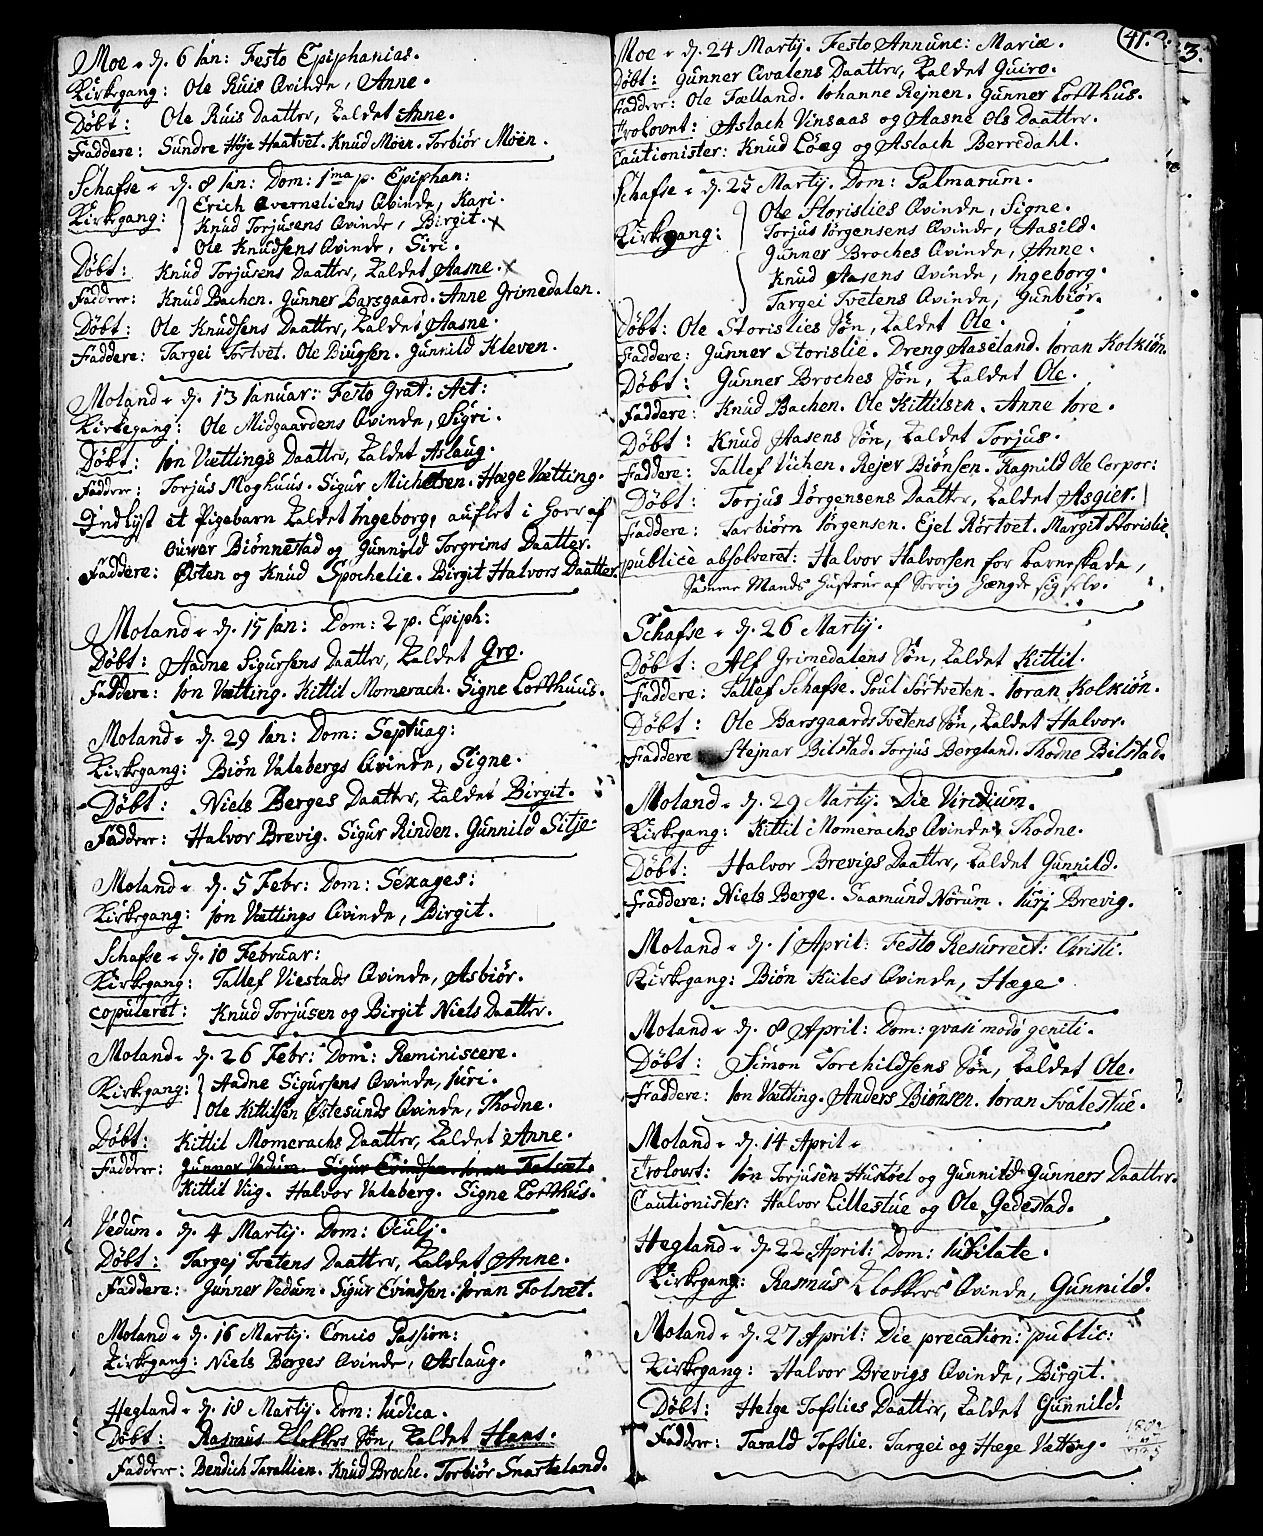 Moe d. 6 Jan: Festo Epiphanias.
Kirkegang: Ole Ruis Qvinde, Anne.
Døbt: Ole Ruis Daatter, kaldet Anne.
Faddere: Sundre Høje Haatvet. Knud Moen. Torbiør Moen.
Schafse d. 8 Jan: Dom: 1ma p. Epiphan:
Kirkegang: Erich Qverneliens Qvinde, Kari.
Knud Torjusens Qvinde, Birgit. x
Ole Knudsens Qvinde, Siri.
Døbt: Knud Torjusens Daatter, kaldet Aasne. x
Faddere: Knud Bachen. Gunner Barsgaard. Anne Grimedalen.
Døbt: Ole Knudsens Daatter, kaldet Aasne.
Faddere: Targei Tortvet. Ole Biugsen. Gunnild Kleven.
Moland d. 13 Januar: Festo Grat: Act:
Kirkegang: Ole Midgaardens Qvinde, Sigri.
Døbt: Jon Vættings Daatter, kaldet Aslaug.
Faddere: Torjus Moghuus. Sigur Michelsen. Hæge Vætting.
Indlyst et Pigebarn kaldet Ingeborg, auflet i Horr af
Ouver Biønnestad og Gunnild Torgrims Daatter.
Faddere: Østen og Knud Spochelie. Birgit Halvors Daatter.
Moland d. 15 Jan: Dom: 2 p. Epiph:
Døbt: Aadne Sigursens Daatter, kaldet Gro.
Faddere: Jon Vætting. Kittil Momerach. Signe Loffthuus.
Moland d. 29 Jan: Dom: Septuag:
Kirkegang: Biøn Valebergs Qvinde, Signe.
Døbt: Niels Berges Daatter, kaldet Birgit.
Faddere: Halvor Brevig. Sigur Rinden. Gunnild Sitje.
Moland d. 5 Febr: Dom: Sexages:
Kirkegang: Jon Vættings Qvinde, Birgit.
Schafse d. 10 Februar:
Kirkegang: Tallef Viestads Qvinde, Asbiør.
copuleret: Knud Torjusen og Birgit Niels Daatter.
Moland d. 26 Febr: Dom: Reminiscere.
Kirkegang: Aadne Sigursens Qvinde, Juri.
Ole Kittilsen Østesunds Qvinde, Thodne.
Døbt: Kittil Momerachs Daatter, kaldet Anne.
Faddere: Gunner Vedum. Sigur Evindsen. Joran Folsæt.
Kittil Viig. Halvor Valeberg. Signe Loffthus.
Vedum d. 4 Martij. Dom: Oculj.
Døbt: Targej Tvetens Daatter, kaldet Anne.
Faddere: Gunner Vedum. Sigur Evindsen. Joran Folsæt.
Moland d. 16 Martij. Concio Passion:
Kirkegang: Niels Berges Qvinde, Aslaug.
Hegland d. 18 Martij. Dom: Judica.
Døbt: Rasmus Klokkers Søn, kaldet Hans.
Faddere: Bendich Tarallien. Knud Broche. Torbiør Snarteland.
41. 3.
Moe d. 24 Martij. Festo Annunc: Mariæ.
Døbt: Gunner Qvalens Daatter, kaldet Guiro.
Faddere: Ole Tælland. Johanne Rejnen. Gunner Loffthus.
Trolovet: Aslach Vinsaas og Aasne Ols Daatter.
Cautionister: Knud Løeg og Aslach Berredahl.
Schafse d. 25 Martij. Dom: Palmarum.
Kirkegang: Ole Storislies Qvinde, Signe.
Torjus Jørgensens Qvinde, Aasild.
Gunner Broches Qvinde, Anne.
Knud Aasens Qvinde, Ingeborg.
Targei Tvetens Qvinde, Gunbiør.
Døbt: Ole Storislies Søn, kaldet Ole.
Faddere: Gunner Storislie. Dreng Aaseland. Joran Kolkiøn.
Døbt: Gunner Broches Søn, kaldet Ole.
Faddere: Knud Bachen. Ole Kittilsen. Anne Jore.
Døbt: Knud Aasens Søn, kaldet Torjus.
Faddere: Tallef Vichen. Rejer Biønsen. Ragnild Ole Corpor:
Døbt: Torjus Jørgensens Daatter, kaldet Asgier.
Faddere: Tarbiørn Jørgensen. Ejel Rørtvet. Margit Storislie.
publicè absolveret: Halvor Halvorsen for barneskade,
Samme Mands Hustrue af Sorrig hængde sig selv.
Schafse d. 26 Martij.
Døbt: Alf Grimedalens Søn, kaldet Kittil.
Faddere: Tallef Schafse. Poul Sørtveten. Joran Kolkiøn.
Døbt: Ole Barsgaards Tvetens Søn, kaldet Halvor.
Faddere Stejnar Bilstad. Torjus Bergland. Thodne Bilstad.
Moland d. 29 Martij. Die Viridium.
Kirkegang: Kittil Momerachs Qvinde, Thodne.
Døbt: Halvor Brevigs Daatter, kaldet Gunnild.
Faddere: Niels Berge. Saamund Norum. Kirj Brevig.
Moland d. 1 April: Festo Resurrect: Christi.
Kirkegang: Biøn Kiiles Qvinde, Hæge.
Moland d. 8 April: Dom: qvasi modo geniti.
Døbt: Simon Torchildsens Søn, kaldet Ole.
Faddere: Jon Vætting. Anders Biønsen. Joran Svalestue.
Moland d. 14 April.
Trolovet: Jon Torjusen Hustøel og Gunnild Gunners Daatter.
Cautionister: Halvor Lillestue og Ole Gedestad.
Hegland d. 22 April: Dom: Jubilate.
Kirkegang: Rasmus Klokkers Qvinde, Gunnild.
Moland d. 27 April: Die precation: public:
Kirkegang: Halvor Brevigs Qvinde, Birgit.
Døbt: Helge Tofslies Daatter, kaldet Gunnild.
Faddere: Tarald Tofslie. Targei og Hæge Vætting.